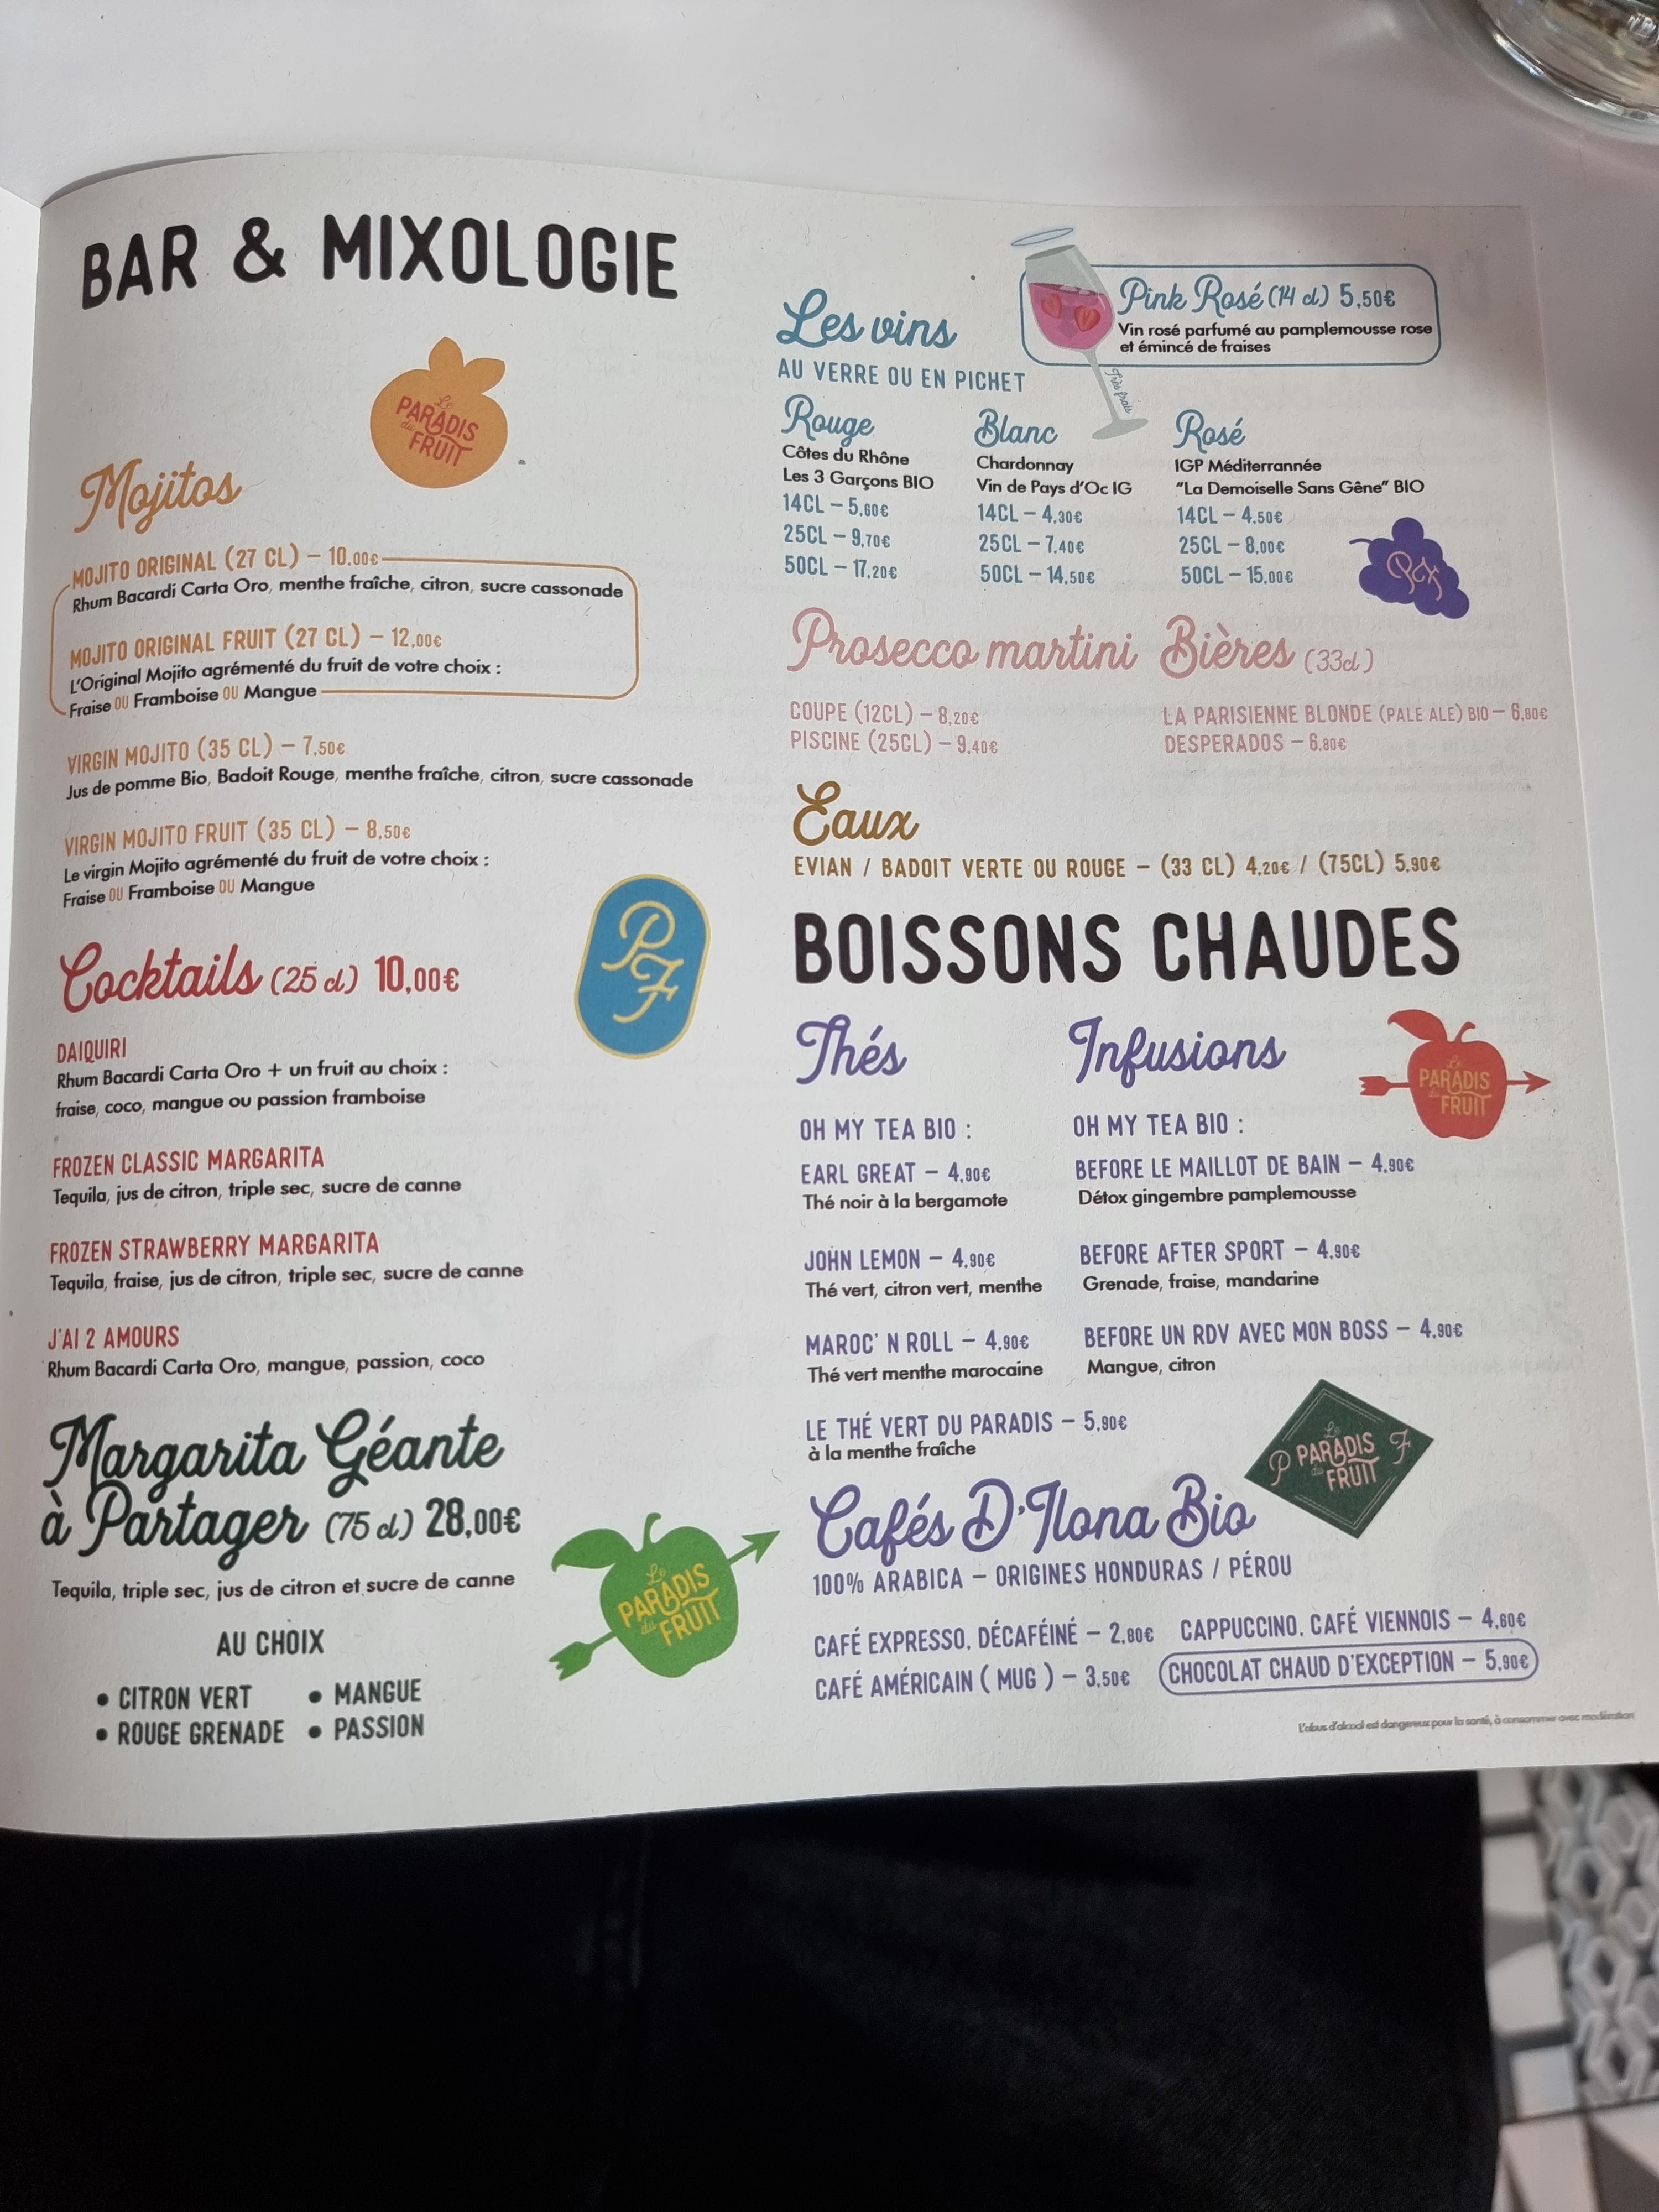 BAR & MIXOLOGIE
Le
PARADIS
du
FRUIT
Mojitos
MOJITO ORIGINAL (27 CL) – 10,00€
Rhum Bacardi Carta Oro, menthe fraîche, citron, sucre cassonade
MOJITO ORIGINAL FRUIT (27 CL) – 12,00€
L'Original Mojito agrémenté du fruit de votre choix :
Fraise OU Framboise OU Mangue
VIRGIN MOJITO (35 CL) – 7,50€
Jus de pomme Bio, Badoit Rouge, menthe fraîche, citron, sucre cassonade
VIRGIN MOJITO FRUIT (35 CL) – 8,50€
Le virgin Mojito agrémenté du fruit de votre choix :
Fraise OU Framboise OU Mangue
PF
Cocktails (25 cl) 10,00€
DAIQUIRI
Rhum Bacardi Carta Oro + un fruit au choix :
fraise, coco, mangue ou passion framboise
FROZEN CLASSIC MARGARITA
Tequila, jus de citron, triple sec, sucre de canne
FROZEN STRAWBERRY MARGARITA
Tequila, fraise, jus de citron, triple sec, sucre de canne
J'AI 2 AMOURS
Rhum Bacardi Carta Oro, mangue, passion, coco
Margarita Géante
à Partager (75 cl) 28,00€
Tequila, triple sec, jus de citron et sucre de canne
AU CHOIX
• CITRON VERT • MANGUE
• ROUGE GRENADE • PASSION
Le
PARADIS
du
FRUIT
Les vins
AU VERRE OU EN PICHET
Pink Rosé (14 cl) 5,50€
Vin rosé parfumé au pamplemousse rose
et émincé de fraises
Très frais
Rouge
Côtes du Rhône
Les 3 Garçons BIO
14CL – 5,60€
25CL – 9,70€
50CL – 17,20€
Blanc
Chardonnay
Vin de Pays d'Oc IG
14CL – 4,30€
25CL – 7,40€
50CL – 14,50€
Rosé
IGP Méditerrannée
"La Demoiselle Sans Gêne" BIO
14CL – 4,50€
25CL – 8,00€
50CL – 15,00€
PF
Prosecco martini
COUPE (12CL) – 8,20€
PISCINE (25CL) – 9,40€
Bières (33cl)
LA PARISIENNE BLONDE (PALE ALE) BIO – 6,80€
DESPERADOS – 6,80€
Eaux
EVIAN / BADOIT VERTE OU ROUGE – (33 CL) 4,20€ / (75CL) 5,90€
BOISSONS CHAUDES
Thés
OH MY TEA BIO :
EARL GREAT – 4,90€
Thé noir à la bergamote
JOHN LEMON – 4,90€
Thé vert, citron vert, menthe
MAROC' N ROLL – 4,90€
Thé vert menthe marocaine
LE THÉ VERT DU PARADIS – 5,90€
à la menthe fraîche
Infusions
OH MY TEA BIO :
BEFORE LE MAILLOT DE BAIN – 4,90€
Détox gingembre pamplemousse
BEFORE AFTER SPORT – 4,90€
Grenade, fraise, mandarine
BEFORE UN RDV AVEC MON BOSS – 4,90€
Mangue, citron
Le
PARADIS
du
FRUIT
P Le PARADIS du FRUIT F
Cafés D'Ilona Bio
100% ARABICA – ORIGINES HONDURAS / PÉROU
CAFÉ EXPRESSO, DÉCAFÉINÉ – 2,80€
CAFÉ AMÉRICAIN ( MUG ) – 3,50€
CAPPUCCINO, CAFÉ VIENNOIS – 4,60€
CHOCOLAT CHAUD D'EXCEPTION – 5,90€
L'abus d'alcool est dangereux pour la santé, à consommer avec modération